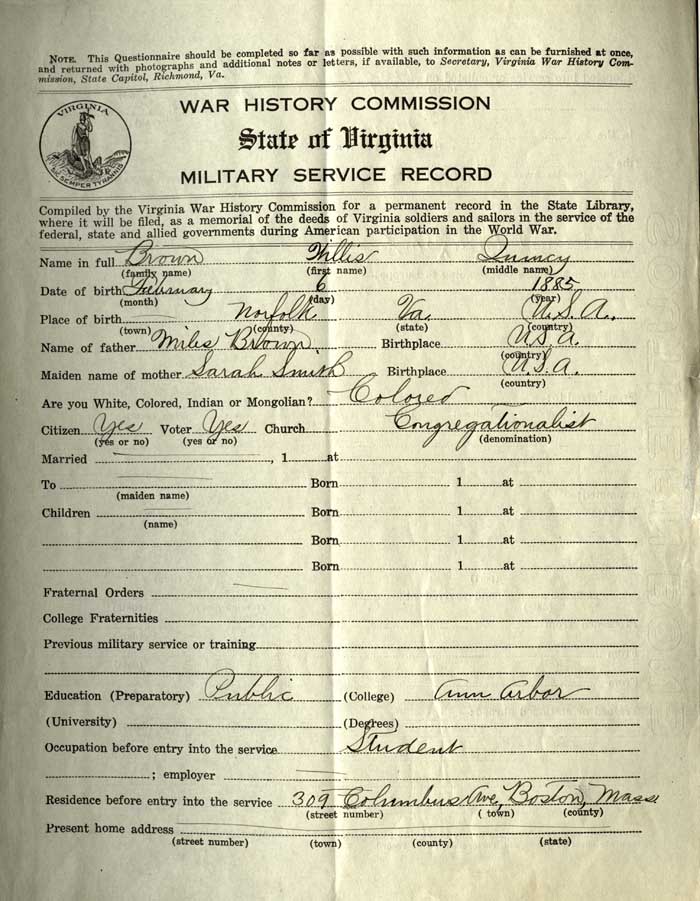 NOTE. This Questionnaire should be completed so far as possible with such information as can be furnished at once,
and returned with photographs and additional notes or letters, if available, to Secretary, Virginia War History Com-
mission, State Capitol, Richmond, Va.
VIRGINIA
SIC SEMPER TYRANNIS
WAR HISTORY COMMISSION
State of Virginia
MILITARY SERVICE RECORD
Compiled by the Virginia War History Commission for a permanent record in the State Library,
where it will be filed, as a memorial of the deeds of Virginia soldiers and sailors in the service of the
federal, state and allied governments during American participation in the World War.
Name in full Brown Willis Quincy
(family name) (first name) (middle name)
Date of birth February 6 1885
(month) (day) (year)
Place of birth Norfolk Va. U.S.A.
(town) (county) (state) (country)
Name of father Miles Brown. Birthplace U.S.A.
(country)
Maiden name of mother Sarah Smith Birthplace U.S.A.
(country)
Are you White, Colored, Indian or Mongolian? Colored
Citizen Yes Voter Yes Church Congregationalist
(yes or no) (yes or no) (denomination)
Married , 1 at
To Born 1 at
(maiden name)
Children Born 1 at
(name)
Born 1 at
Born 1 at
Fraternal Orders
College Fraternities
Previous military service or training
Education (Preparatory) Public (College) Ann Arbor
(University) (Degrees)
Occupation before entry into the service Student
; employer
Residence before entry into the service 309 Columbus Ave, Boston, Mass
(street number) (town) (county)
Present home address
(street number) (town) (county) (state)